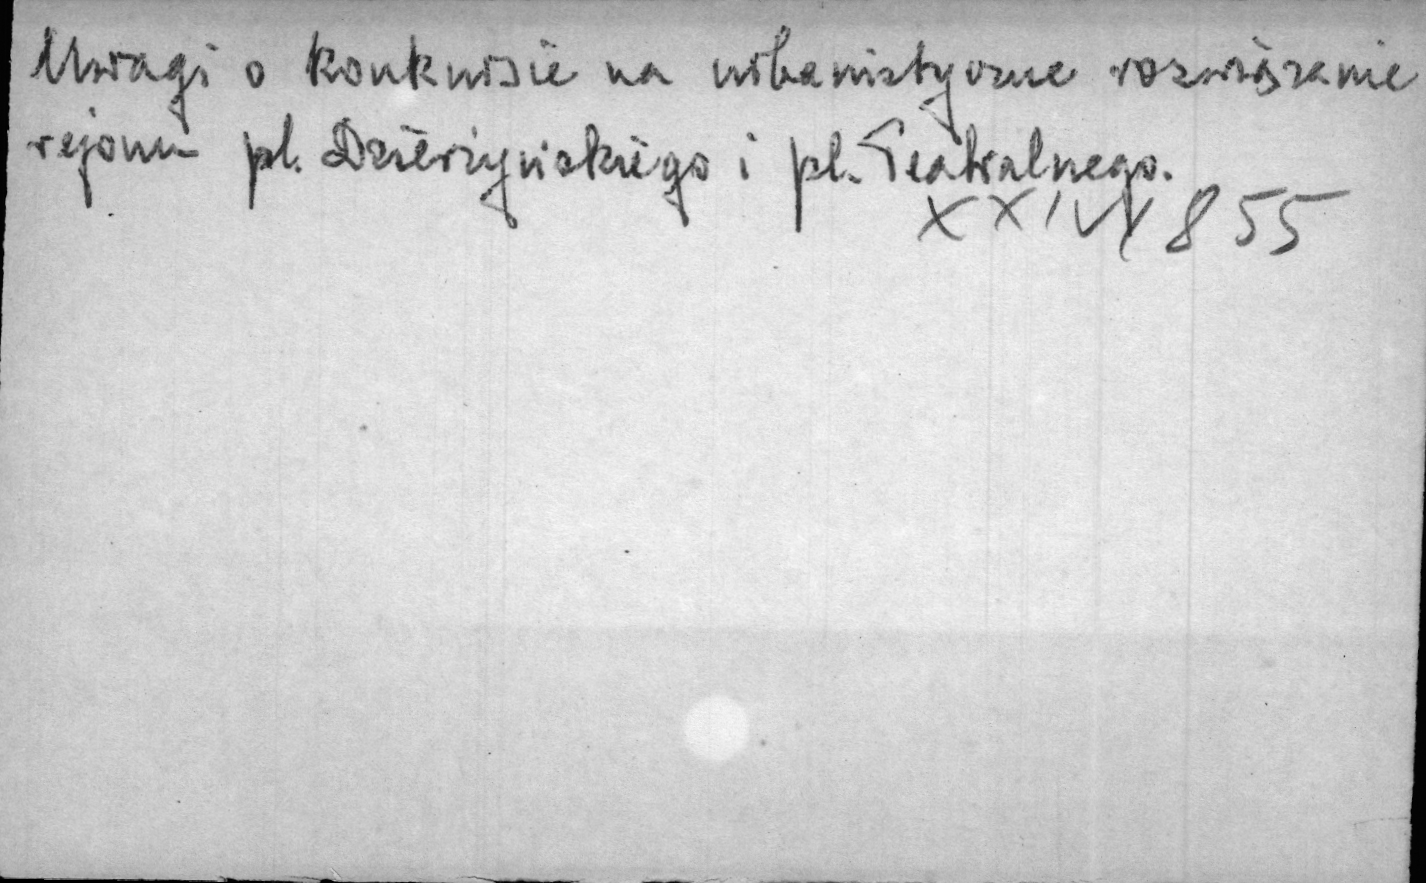 Uwagi o konkursie na urbanistyczne rozwiązanie
rejonu pl. Dzierżyńskiego i pl. Teatralnego.
XXIV 855